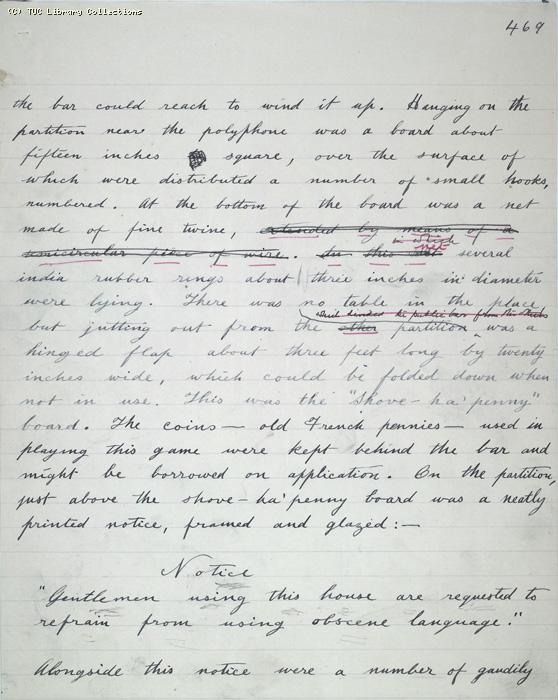 (C) TUC Library Collections
469
the bar could reach to wind it up. Hanging on the
partition near the polyphone was a board about
fifteen inches square, over the surface of
which were distributed a number of small hooks,
numbered. At the bottom of the board was a net
made of fine twine, extended by means of a
in which
semicircular piece of wire. In this net several
net
india rubber rings about three inches in diameter
were lying. There was no table in the place
that divided the public bar from the others
but jutting out from the other partition was a
hinged flap about three feet long by twenty
inches wide, which could be folded down when
not in use. This was the "Shove-ha'penny"
board. The coins — old French pennies — used in
playing this game were kept behind the bar and
might be borrowed on application. On the partition,
just above the shove-ha'penny board was a neatly
printed notice, framed and glazed:—
Notice
"Gentlemen using this house are requested to
refrain from using obscene language."
Alongside this notice were a number of gaudily